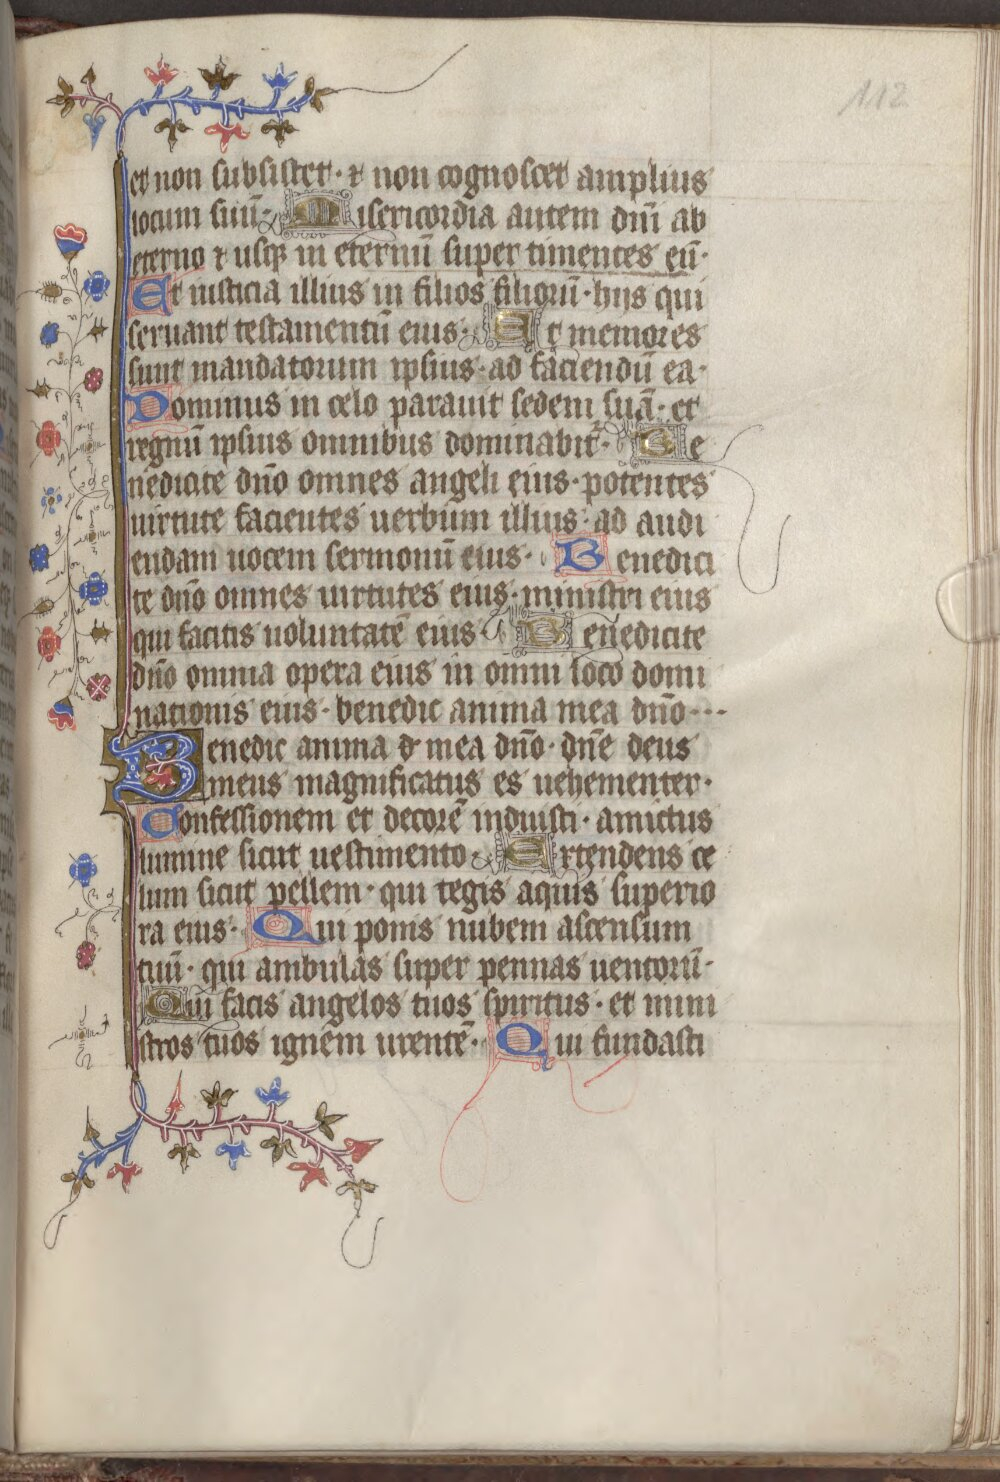 112
et non subsistet · ⁊ non cognoscet amplius
locum suū · Misericordia autem dn̄i ab
eterno ⁊ usqꝫ in eternū super timentes eū ·
Et iusticia illius in filios filiorū · hijs qui
seruant testamentū eius · Et memores
sunt mandatorum ipsius · ad faciendū ea ·
Dominus in celo parauit sedem suā · et
regnū ipsius omnibus dominabit᷑ · Be
nedicite dn̄o omnes angeli eius · potentes
uirtute facientes uerbum illius · ad audi
endam uocem sermonū eius · Benedici
te dn̄o omnes uirtutes eius · ministri eius
qui facitis uoluntatē eius · Benedicite
dn̄o omnia opera eius in omni loco domi
nationis eius · benedic anima mea dn̄o ···
Benedic anima mea dn̄o · dn̄e deus
meus magnificatus es uehementer ·
Confessionem et decorē induisti · amictus
lumine sicut uestimento · Extendens ce
lum sicut pellem · qui tegis aquis superio
ra eius · Qui ponis nubem ascensum
tuū · qui ambulas super pennas uentorū ·
Qui facis angelos tuos spiritus · et mini
stros tuos ignem urentē · Qui fundasti